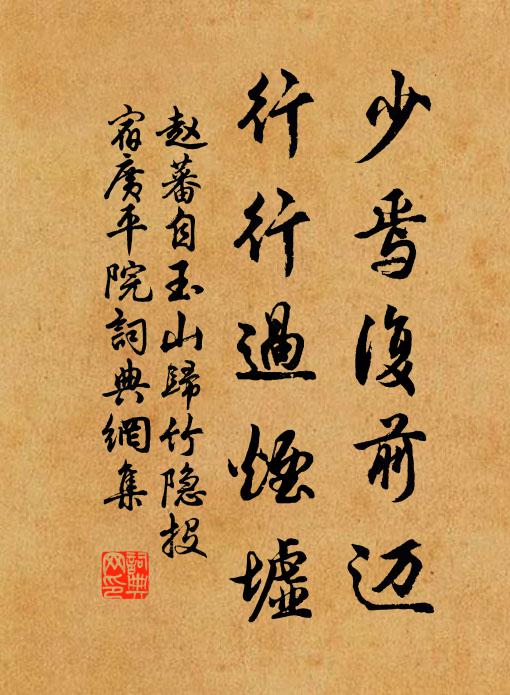 少焉復前迈
行行過煙墟
赵蕃自玉山歸竹隐投
宿廣平院詞典網集
詞典网印